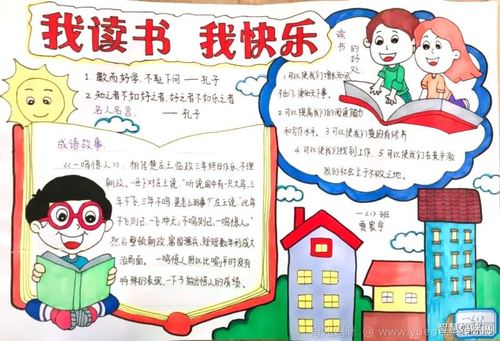 我读书 我快乐
1. 敏而好学，不耻下问 —— 孔子
2. 知之者不如好之者，好之者不如乐之者
—— 孔子
名人名言
读书的好处
1.可以使我们增长知识
2.可以提高我们的阅读能力
和写作水平。3.可以使我们变的有修养
4.可以使我们找到工作。5.可以使我们在竞争激
烈的社会立于不败之地。
成语故事：
《一鸣惊人》，相传楚庄王临政三年终日作乐，不理
朝政，一臣下对庄王说"听说国中有一只大鸟，三
年不飞，三年不鸣是怎么回事？"庄王说"此鸟
不飞则已，一飞冲天；不鸣则已，一鸣惊人。"
然后整顿朝政，富国强兵，短短数年形成大
治局面。一鸣惊人用以比喻平时没有
特殊的表现，一下子做出惊人的成绩。
一(1)班
一(1)
智慧妈咪网